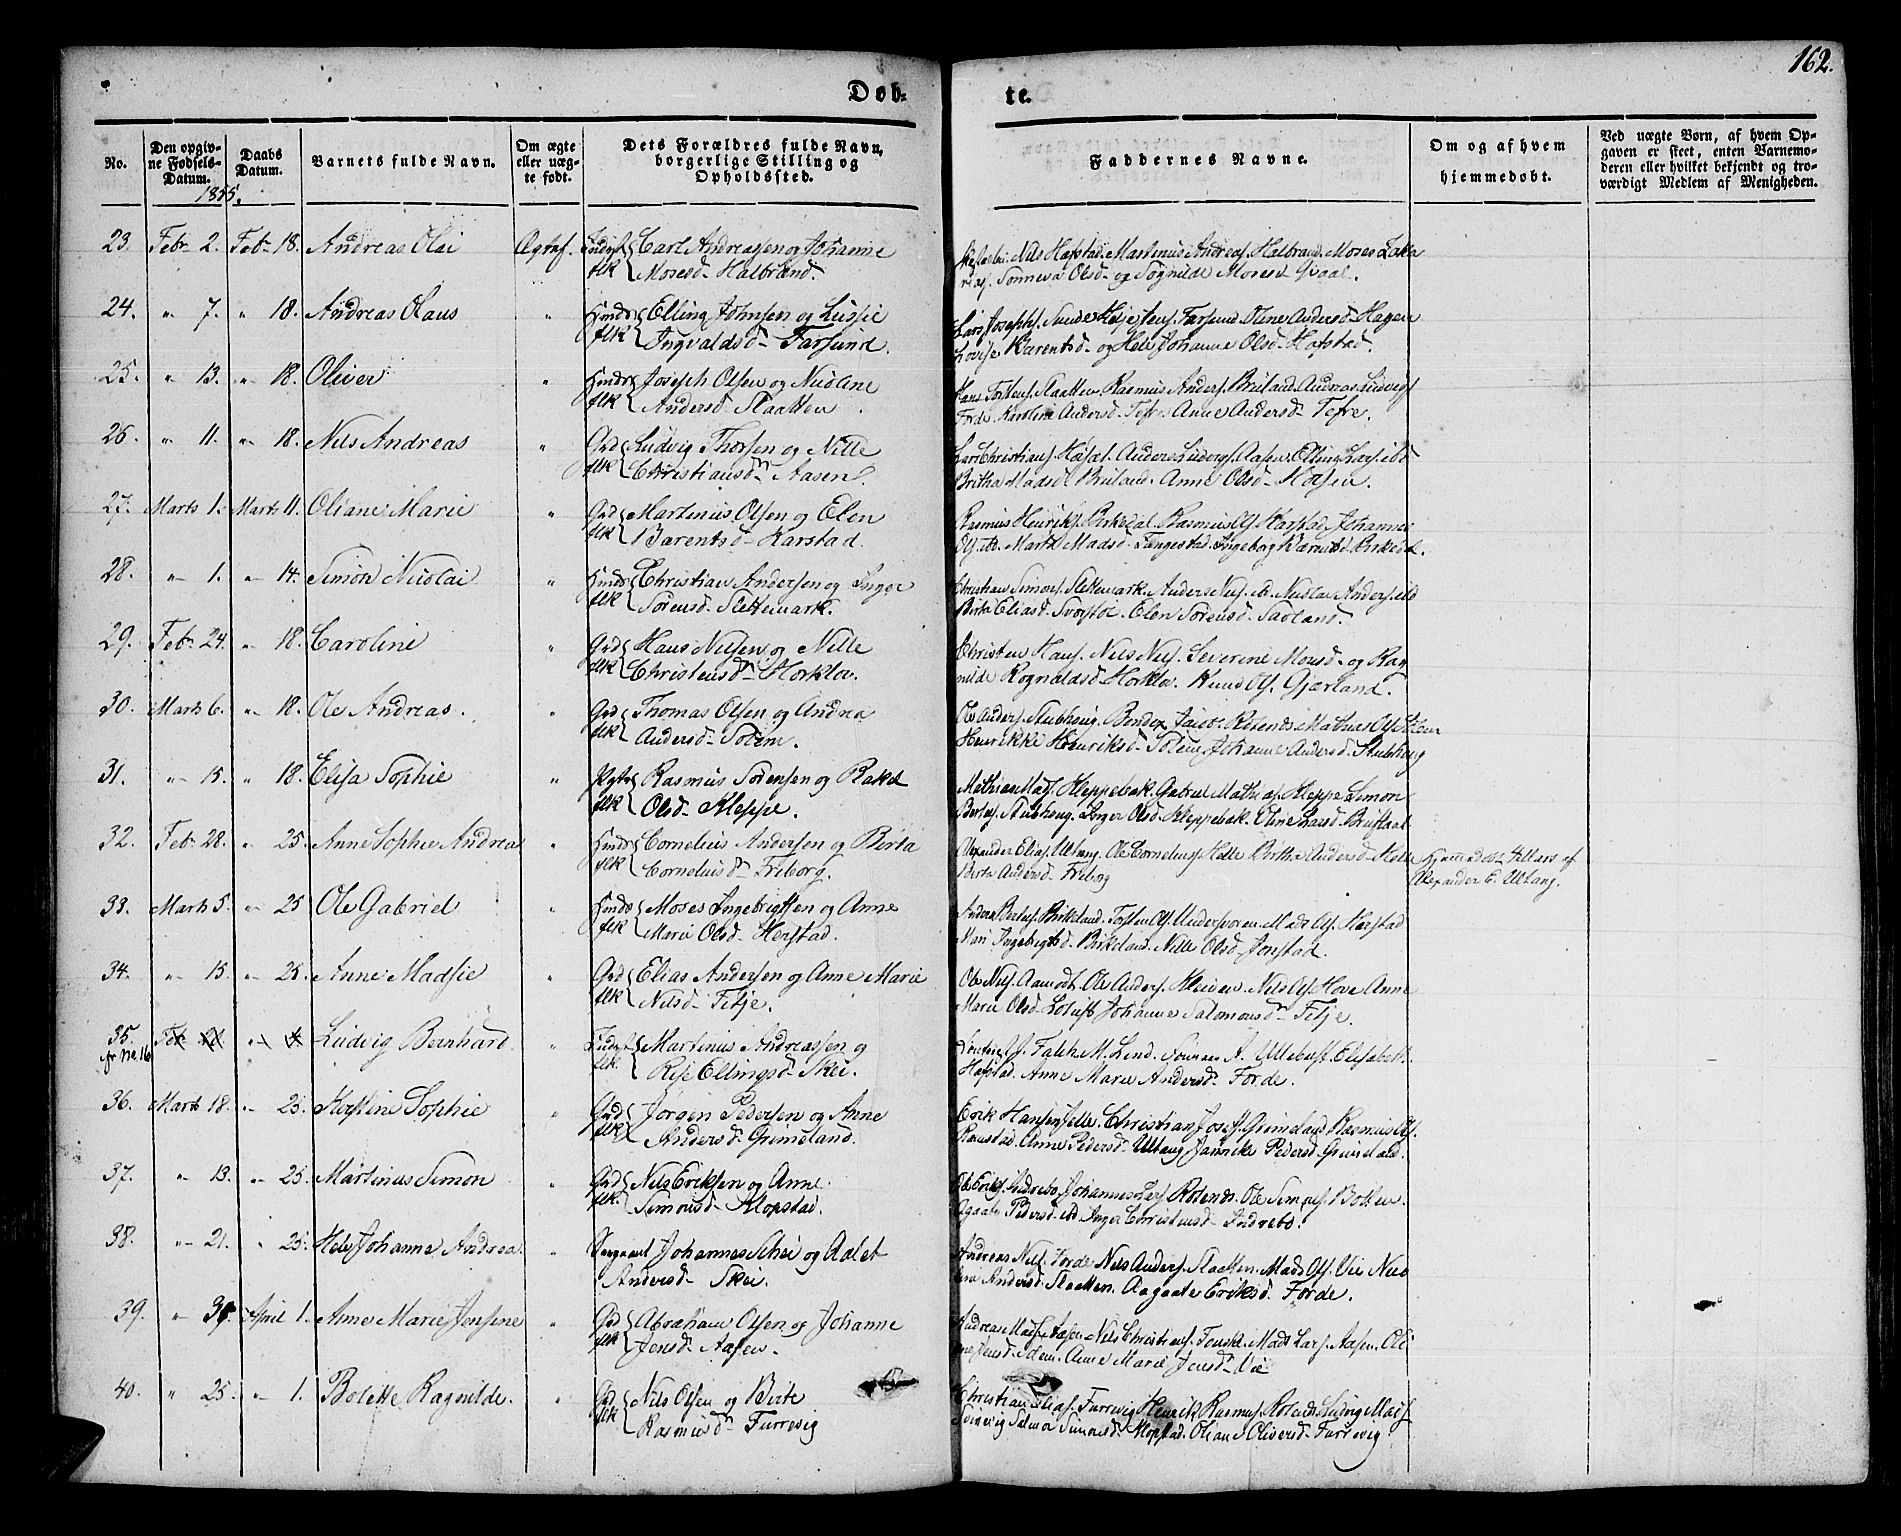 162.
Døb-
te.
No.
Den opgiv-
ne Fødsels-
Datum.
Daabs
Datum.
Barnets fulde Navn.
Om ægte
eller uæg-
te født.
Dets Forældres fulde Navn,
borgerlige Stilling og
Opholdssted.
Faddernes Navne.
Om og af hvem
hjemmedøbt.
Ved uægte Børn, af hvem Op-
gaven er skeet, enten Barnemo-
deren eller hvilket bekjendt og tro-
værdigt Medlem af Menigheden.
1855.
23. Febr 2. Febr 18. Andreas Olai Ægtef. Carl Andreassen og Johanne
flk Mosesd- Halbrænd.
Nils Hafstad. Martinus Andreas. Halbrand. Moses
Sonneva Olsd- og Sognilde Mosesd Qvaal.
24. " 7. " 18. Andreas Olaus " Huusm Elling Johnsen og Lussie
flk Ingvaldsd- Farsund.
Lars Josephs. Farsund. Oline Andersd- Hagen
Lovise Barentsd- og Hele Johanne Olsd- Hafstad.
25. " 13. " 18. Oliver " Huusm Joseph Olsen og Nicoline
flk Andersd- Slaatten.
Hans Slaatten. Rasmus Anders. Bruland. Andreas Ludvigs
Førde. Karoline Andersd- Tefre. Anne Andersd- Tefre.
26. " 11. " 18. Nils Andreas " Grd Ludvig Thorsen og Nille
flk Christiansdr Aasen.
Lars Christians. Anders Ludvigs. Aasen. Elling Lars. ibd
Britha Madsd Bruland. Anne Olsd-
27. Marts 1. Marts 11. Oliane Marie " Grd Martinus Olsen og Elen
flk Barentsd- Karstad.
Rasmus Henriks. Birkedal. Rasmus Ols Karstad. Johannes
Ols. ib. Marte Madsd- Ingeborg Barentsd Birkedal.
28. " 1. " 14. Simon Nicolai " Huusm Christian Andersen og Inger
flk Sørensd- Slettemark.
Christian Simons. Slettemark. Anders Nils. ib. Anders. ibd
Birte Eliasd- Elen Sørensd-
29. Febr 24. " 18. Caroline " Grd Hans Nilsen og Nille
flk Christensdr Horklov.
Christen Hans. Nils Nils. Severine Monsd- og Rag-
nilde Rognaldsd Horklov. Knud Ols. Gjærland.
30. Marts 6. " 18. Ole Andreas. " Grd Thomas Olsen og Andrea
flk Andersd- Solem.
Ole Anders. Stubhoug. Bendix Jacob.
Henrikke Henriksd- Solem. Johanne Andersd- Stubhoug
31. " 15. " 18. Elisa Sophie " Rasmus Sørensen og Rakel
flk Olsd- Kleppe.
Mathias Mads. Kleppebak. Gabriel Mathias. Kleppe Simon
Stubhoug. Inger Olsd- Kleppebak. Oline Larsd-
32. Febr 28. " 25. Anne Sophie Andrea " Huusm Cornelius Andersen og Berta
flk Corneliusdr Friborg.
Alexander Elias. Ultang. Ole Cornelius. Helle Britha Andersd- Helle
Berta Andersd- Friborg
Hjemmedøbt 4 Marts af
Alexander E. Ultang.
33. Marts 5. " 25 Ole Gabriel " Huusm Moses Ingebrigtsen og Anne
flk Marie Olsd- Herstad.
Birkeland. Torsten Ols. Mads Ols. Herstad
Mari Ingebrigtsd- Birkeland. Nille Olsd- Jonstad.
34. " 15. " 25. Anne Madsie " Grd Elias Andersen og Anne Marie
flk Nilsd- Fitje.
Ole Nils. Aamodt. Ole Anders. Nils Ols. Hove Anne
Marie Olsd- Johanne Salomonsdr- Fitje.
35. Febr " Ludvig Bernhard. " Martinus Andreassen og
fr No. 16 flk Rise Ellingsd- Skei.
J. Falch M. Lind. A. Elisabeth
Hafstad. Anne Marie Andersd- Førde.
36. Marts 18. " 25. Kerstine Sophie " Grd Jørgen Pedersen og Anne
flk Andersd- Grimeland.
Erik Hansen Christian Josef. Grimeland Rasmus Ols.
Anne Pedersd- Ultang Jannike Pedersd- Grimeland.
37. " 13. " 25. Martinus Simon " Grd Nils Eriksen og Anne
flk. Simonsd- Klopstad.
Ole Eriks. Indrebø. Johannes Ole Simons.
Agaate Pedersd ibd Inger Christensd- Indrebø.
38. " 21. " 25. Hele Johanne Andrea. " Sergeant Johannes Skei og Adlet
Andersd- Skei.
Andreas Nils. Førde. Nils Anders. Slaatten. Mads Ols. Vie
Andersd- Slaatten. Aagaate Eriksd. Førde.
39. " April 1. Anne Marie Jensine " Grd Abraham Olsen og Johanne
flk Jensd- Aasen.
Andreas Mads. Aasen. Nils Christians. Mads Lars. Aasen. Oli-
Jensd- Anne Marie Jensd- Vie
40. " 25. " 1. Bolette Ragnilde. " Grd Nils Olsen og Birte
flk Rasmusdr Furrevig
Christian Elias. Furrevig Henrik Rasmus. Ludvig Mads
Simonsd- Klopstad. Oliane Oliversd- Furrevig